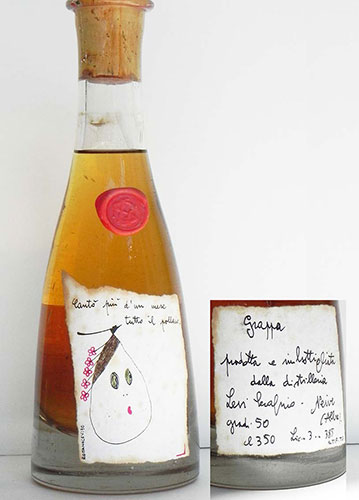 Cantò più d'un mese
tutto il pollaio
Grappa
prodotta e imbottigliata
dalla distilleria
Levi Serafino - Neive
(Alba)
grad. 50
cl 350 Lic. 3